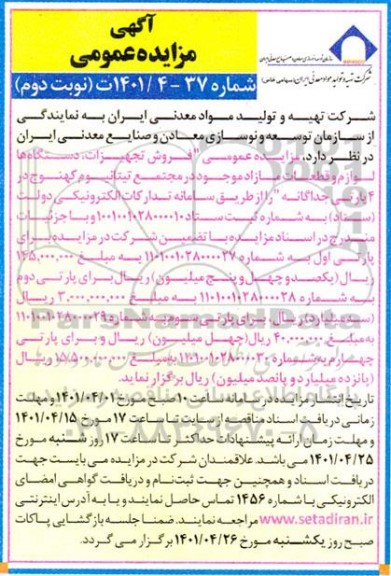 آگهی
مزایده عمومی
شرکت تهیه و تولید مواد معدنی ایران (سهامی خاص)
شماره ۳۷ - ۴ /۱۴۰۱ت (نوبت دوم)
شرکت تهیه و تولید مواد معدنی ایران به نمایندگی
از سازمان توسعه و نوسازی معادن و صنایع معدنی ایران
در نظر دارد، مزایده عمومی "فروش تجهیزات، دستگاه‌ها
لوازم و قطعات مازاد موجود در مجتمع تیتانیوم کهنوج در
۴ پارتی جداگانه" را از طریق سامانه تدارکات الکترونیکی دولت
(ستاد) به شماره ثبت ستاد و با جزئیات
مندرج در اسناد مزایده با تضمین شرکت در مزایده برای
پارتی اول به شماره به مبلغ ۱۴۵,۰۰۰,۰۰۰
ریال (یکصد و چهل و پنج میلیون) ریال برای پارتی دوم
به شماره به مبلغ ۳,۰۰۰,۰۰۰,۰۰۰ ریال
(سه میلیارد) ریال برای پارتی سوم به شماره
به مبلغ ۴۰,۰۰۰,۰۰۰ ریال (چهل میلیون) ریال و برای پارتی
چهارم به شماره به مبلغ ۱۵,۵۰۰,۰۰۰,۰۰۰ ریال
(پانزده میلیارد و پانصد میلیون) ریال برگزار نماید.
تاریخ انتشار مزایده در سامانه ساعت ۱۰ صبح مورخ ۱۴۰۱/۰۴/۰۱ و مهلت
زمانی دریافت اسناد مناقصه از سایت تا ساعت ۱۷ مورخ ۱۴۰۱/۰۴/۱۵
و مهلت زمان ارائه پیشنهادات حداکثر تا ساعت ۱۷ روز شنبه مورخ
۱۴۰۱/۰۴/۲۵ می باشد. علاقمندان شرکت در مزایده می بایست جهت
دریافت اسناد و همچنین جهت ثبت‌نام و دریافت گواهی امضای
الکترونیکی با شماره ۱۴۵۶ تماس حاصل نمایند و یا به آدرس اینترنتی
www.setadiran.ir مراجعه نمایند. ضمنا جلسه بازگشایی پاکات
صبح روز یکشنبه مورخ ۱۴۰۱/۰۴/۲۶ برگزار می گردد.